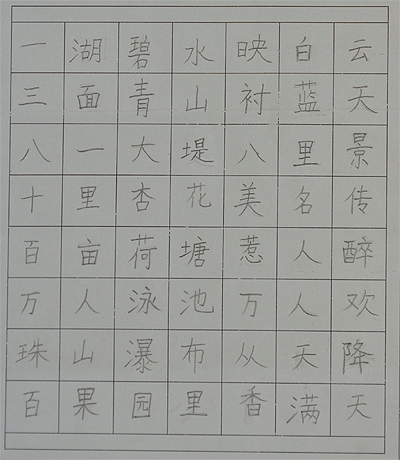 一湖碧水映白云
三面青山衬蓝天
八一大堤八里景
十里杏花美名传
百亩荷塘惹人醉
万人泳池万人欢
珠山瀑布从天降
百果园里香满天